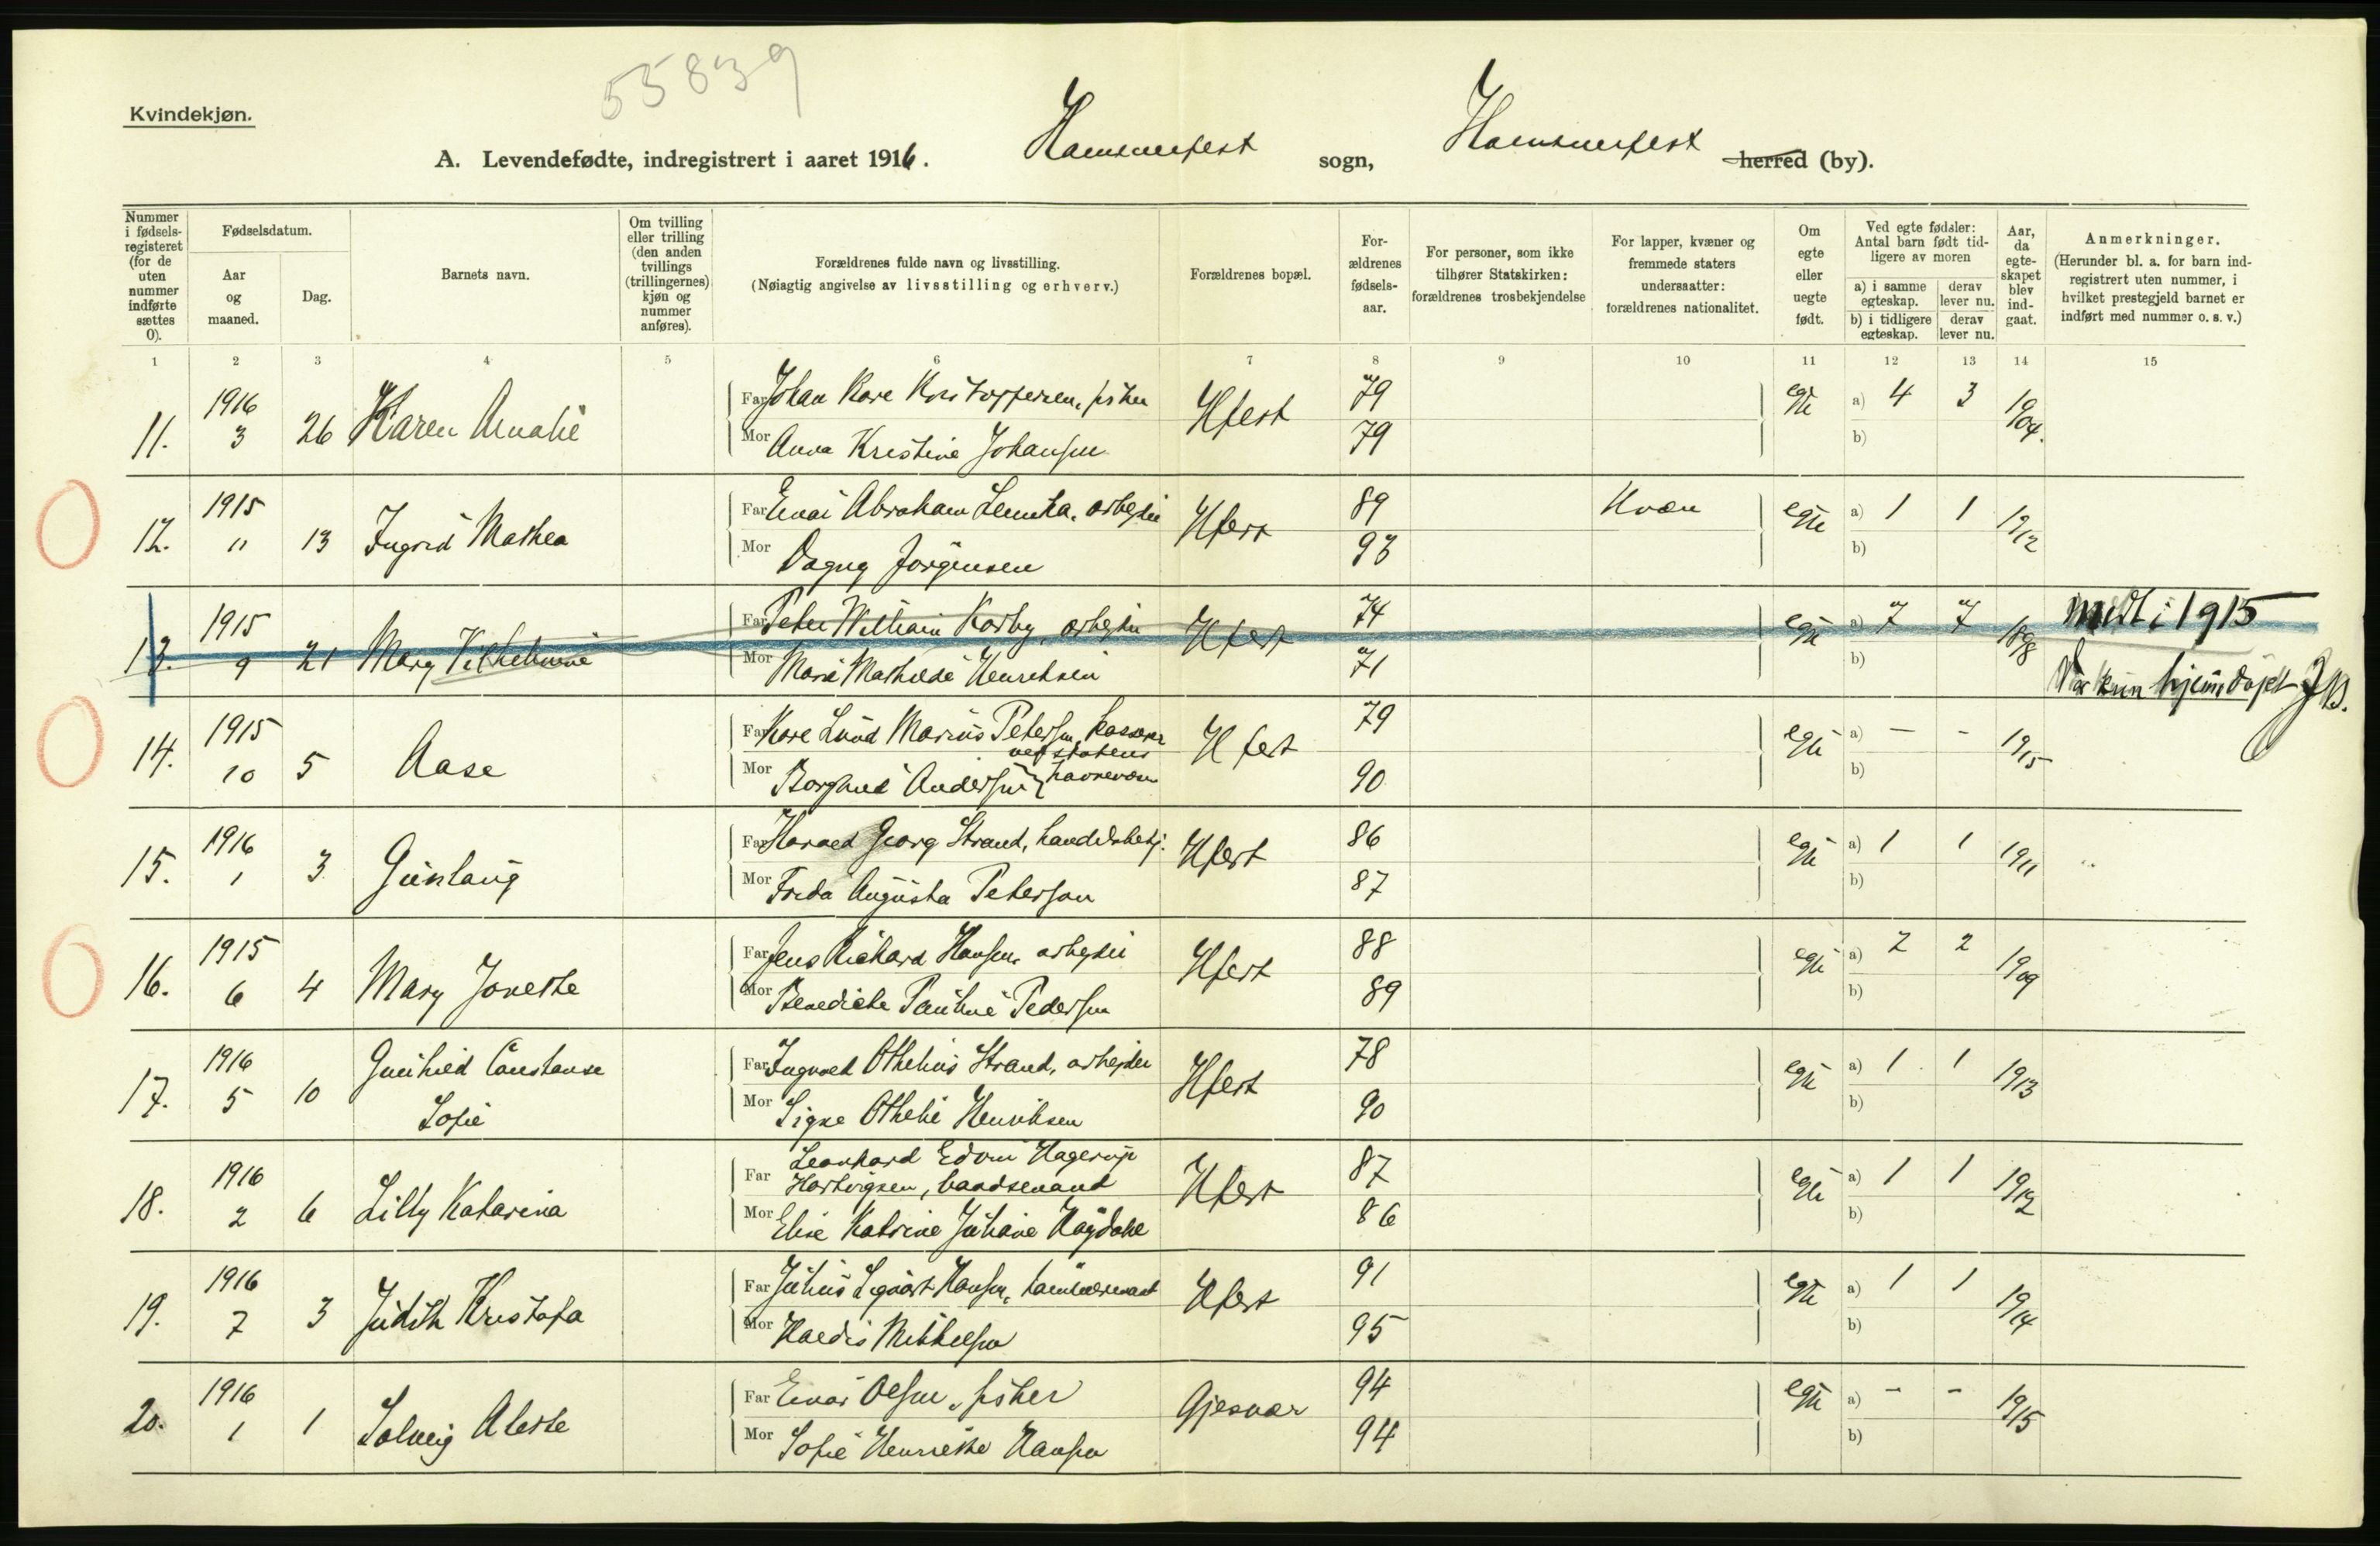 55839
Kvindekjøn.
A. Levendefødte, indregistrert i aaret 1916. Hammerfest sogn, Hammerfest herred (by).
Nummer i fødsels-registeret (for de uten nummer indførte sættes 0).
Fødselsdatum.
Aar og maaned.
Dag.
Barnets navn.
Om tvilling eller trilling (den anden tvillings (trillingernes) kjøn og nummer anføres).
Forældrenes fulde navn og livsstilling.
(Nøiagtig angivelse av livsstilling og erhverv.)
Forældrenes bopæl.
For-ældrenes fødsels-aar.
For personer, som ikke tilhører Statskirken: forældrenes trosbekjendelse
For lapper, kvæner og fremmede staters undersaatter: forældrenes nationalitet.
Om egte eller uegte født.
Ved egte fødsler: Antal barn født tid-ligere av moren
a) i samme egteskap. derav lever nu.
b) i tidligere egteskap. derav lever nu.
Aar, da egte-skapet blev ind-gaat.
Anmerkninger.
(Herunder bl. a. for barn ind-registrert uten nummer, i hvilket prestegjeld barnet er indført med nummer o. s. v.)
1 2 3 4 5 6 7 8 9 10 11 12 13 14 15
11. 1916 3 26 Karen Amalie
Far Johan Kare Kristoffersen, fisker Hfest 79 egte a) 4 3 1904.
Mor Anna Kristine Johansen 79 b)
12. 1915 11 13 Ingrid Mathea
Far Einar Abraham arbeider Hfest 89 Kvæn egte a) 1 1 1912
Mor Dagny Jörgensen 93 b)
13. 1915 9 21 Mary Vilhelmine
Far Peter William Korby, arbeider Hfest 74 egte a) 7 7 1898 medt i 1915
Mor Marie Mathilde Henriksen 71 b) Var kun hjemmedøpt JB.
14. 1915 10 5 Aase
Far Kare Lund Marius Petersen, kasserer ved statens havnevæsen Hfest 79 egte a) - - 1915
Mor Borghild Andersen 90 b)
15. 1916 1 3 Gunlaug
Far Harald Georg Strand, handelsbetj. Hfest 86 egte a) 1 1 1911
Mor Frida Augusta Peterson 87 b)
16. 1915 6 4 Mary Jonette
Far Jens Rickard Hansen, arbeider Hfest 88 egte a) 2 2 1909
Mor Benedicte Pauline Pedersen 89 b)
17. 1916 5 10 Gunhild Constanse Sofie
Far Ingvald Othelius Strand, arbeider Hfest 78 egte a) 1 1 1913
Mor Signe Othelie Henriksen 90 b)
18. 1916 2 6 Lilly Katarina
Far Leonhard Edvin Hagerup Hartvigsen, baadsmand Hfest 87 egte a) 1 1 1912
Mor Elise Katrine Juliane Haugdahl 86 b)
19. 1916 7 3 Judith Kristofa
Far Julius Sigvart Hansen, Hfest 91 egte a) 1 1 1914
Mor Haldis Mikkelsen 95 b)
20. 1916 1 1 Solveig Alette
Far Einar Olsen, fisker Gjesvær 94 egte a) - - 1915
Mor Sofie Henrikke Hansen 94 b)